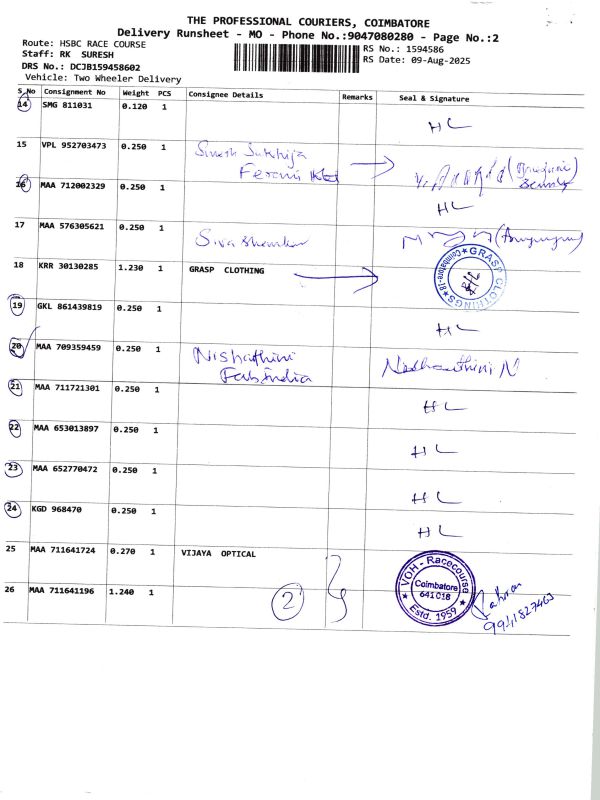 THE PROFESSIONAL COURIERS, COIMBATORE
Delivery Runsheet - MO - Phone No.:9047080280 - Page No.:2
Route: HSBC RACE COURSE
RS No.: 1594586
Staff: RK SURESH
RS Date: 09-Aug-2025
DRS No.: DCJB159458602
Vehicle: Two Wheeler Delivery
S No Consignment No Weight PCS Consignee Details Remarks Seal & Signature
14 SMG 811031 0.120 1 HL
15 VPL 952703473 0.250 1
16 MAA 712002329 0.250 1 HL
17 MAA 576305621 0.250 1
18 KRR 30130285 1.230 1 GRASP CLOTHING ★ GRASP CLOTHINGS ★ Coimbatore-18
19 GKL 861439819 0.250 1 HL
20 MAA 709359459 0.250 1 Nishathini
Fab India
21 MAA 711721301 0.250 1 HL
22 MAA 653013897 0.250 1 HL
23 MAA 652770472 0.250 1 HL
24 KGD 968470 0.250 1 HL
25 MAA 711641724 0.270 1 VIJAYA OPTICAL
26 MAA 711641196 1.240 1 2
VOH - Racecourse
Coimbatore
641 018
★ Estd. 1959 ★